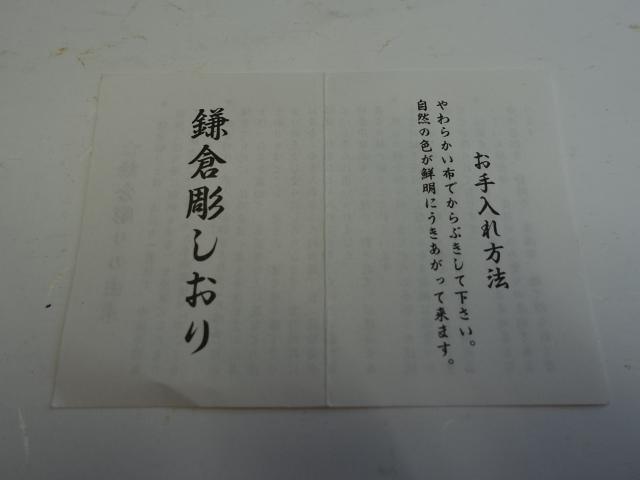 お手入れ方法
やわらかい布でからぶきして下さい。
自然の色が鮮明にうきあがって来ます。
鎌倉彫しおり